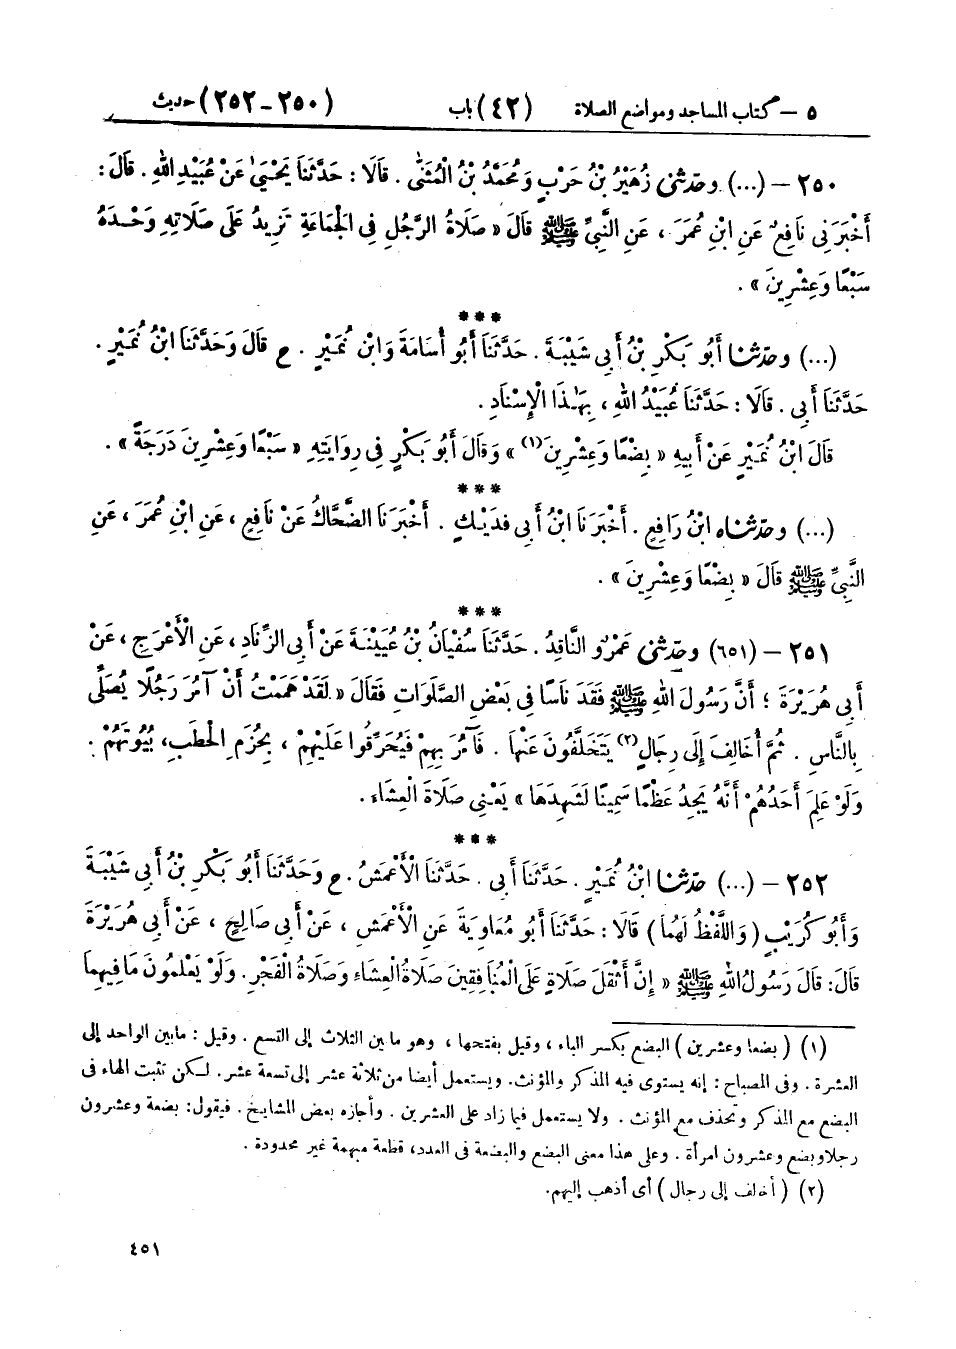 ٥ – كتاب المساجد ومواضع الصلاة (٤٢) باب (٢٥٠–٢٥٢) حديث
٢٥٠ – (...) وحدثني زُهَيْرُ بْنُ حَرْبٍ وَمُحَمَّدُ بْنُ الْمُثَنَّى . قَالَا : حَدَّثَنَا يَحْيَىٰ عَنْ عُبَيْدِ اللهِ . قَالَ :
أَخْبَرَنِي نَافِعٌ عَنِ ابْنِ عُمَرَ ، عَنِ النَّبِيِّ ﷺ قَالَ « صَلَاةُ الرَّجُلِ فِي الْجَمَاعَةِ تَزِيدُ عَلَى صَلَاتِهِ وَحْدَهُ
سَبْعًا وَعِشْرِينَ » .
***
(...) وحدثنا أَبُو بَكْرِ بْنُ أَبِي شَيْبَةَ . حَدَّثَنَا أَبُو أُسَامَةَ وَابْنُ نُمَيْرٍ . ح قَالَ وَحَدَّثَنَا ابْنُ نُمَيْرٍ .
حَدَّثَنَا أَبِي . قَالَا : حَدَّثَنَا عُبَيْدُ اللهِ ، بِهَٰذَا الْإِسْنَادِ .
قَالَ ابْنُ نُمَيْرٍ عَنْ أَبِيهِ « بِضْعًا وَعِشْرِينَ(١) » وَقَالَ أَبُو بَكْرٍ فِي رِوَايَتِهِ « سَبْعًا وَعِشْرِينَ دَرَجَةً » .
***
(...) وحدثناه ابْنُ رَافِعٍ . أَخْبَرَنَا ابْنُ أَبِي فُدَيْكٍ . أَخْبَرَنَا الضَّحَّاكُ عَنْ نَافِعٍ ، عَنِ ابْنِ عُمَرَ ، عَنِ
النَّبِيِّ ﷺ قَالَ « بِضْعًا وَعِشْرِينَ » .
***
٢٥١ – (٦٥١) وحدثني عَمْرٌو النَّاقِدُ . حَدَّثَنَا سُفْيَانُ بْنُ عُيَيْنَةَ عَنْ أَبِي الزِّنَادِ ، عَنِ الْأَعْرَجِ ، عَنْ
أَبِي هُرَيْرَةَ ؛ أَنَّ رَسُولَ اللهِ ﷺ فَقَدَ نَاسًا فِي بَعْضِ الصَّلَوَاتِ فَقَالَ « لَقَدْ هَمَمْتُ أَنْ آمُرَ رَجُلًا يُصَلِّي
بِالنَّاسِ . ثُمَّ أُخَالِفَ إِلَى رِجَالٍ(٢) يَتَخَلَّفُونَ عَنْهَا . فَآمُرَ بِهِمْ فَيُحَرِّقُوا عَلَيْهِمْ ، بِحُزَمِ الْحَطَبِ ، بُيُوتَهُمْ .
وَلَوْ عَلِمَ أَحَدُهُمْ أَنَّهُ يَجِدُ عَظْمًا سَمِينًا لَشَهِدَهَا » يَعْنِي صَلَاةَ الْعِشَاءِ .
***
٢٥٢ – (...) حدثنا ابْنُ نُمَيْرٍ . حَدَّثَنَا أَبِي . حَدَّثَنَا الْأَعْمَشُ . ح وَحَدَّثَنَا أَبُو بَكْرِ بْنُ أَبِي شَيْبَةَ
وَأَبُو كُرَيْبٍ ( وَاللَّفْظُ لَهُمَا ) قَالَا : حَدَّثَنَا أَبُو مُعَاوِيَةَ عَنِ الْأَعْمَشِ ، عَنْ أَبِي صَالِحٍ ، عَنْ أَبِي هُرَيْرَةَ
قَالَ : قَالَ رَسُولُ اللهِ ﷺ « إِنَّ أَثْقَلَ صَلَاةٍ عَلَى الْمُنَافِقِينَ صَلَاةُ الْعِشَاءِ وَصَلَاةُ الْفَجْرِ . وَلَوْ يَعْلَمُونَ مَا فِيهِمَا
(١) ( بضعا وعشرين ) البضع بكسر الباء ، وقيل بفتحها ، وهو ما بين الثلاث إلى التسع . وقيل : مابين الواحد إلى
العشرة . وفى المصباح : إنه يستوى فيه المذكر والمؤنث . ويستعمل أيضا من ثلاثة عشر إلى تسعة عشر . لكن تثبت الهاء فى
البضع مع المذكر وتحذف مع المؤنث . ولا يستعمل فيما زاد على العشرين . وأجازه بعض المشايخ . فيقول : بضعة وعشرون
رجلا وبضع وعشرون امرأة . وعلى هذا معنى البضع والبضعة فى العدد ، قطعة مبهمة غير محدودة .
(٢) ( أخالف إلى رجال ) أى أذهب إليهم .
٤٥١